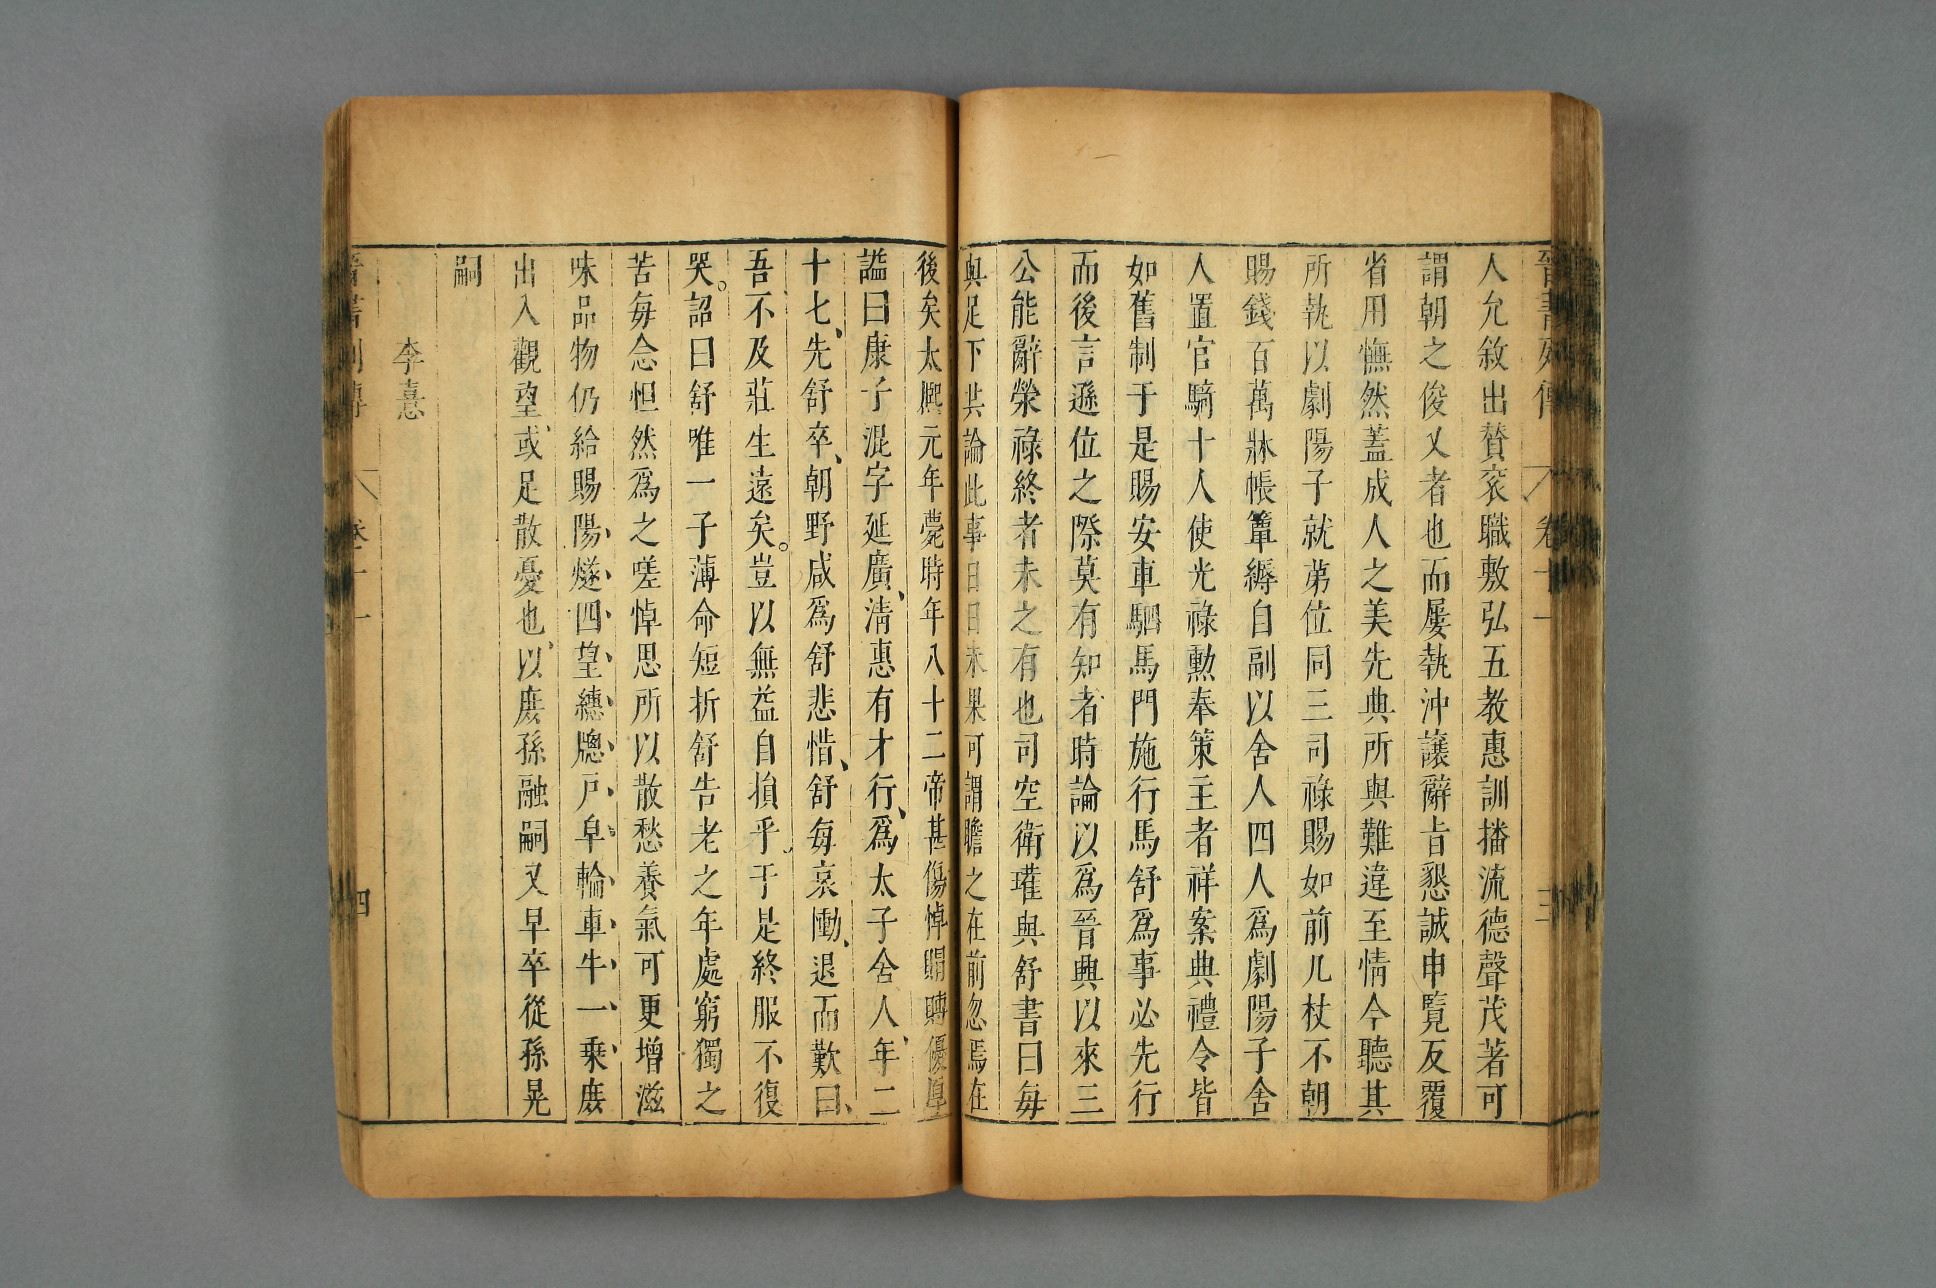 晉書列傳 卷十一 三
人允敘出贊袞職敷弘五教惠訓播流德聲茂著可
謂朝之俊乂者也而屢執沖讓辭旨懇誠申覽反覆
省用憮然蓋成人之美先典所與難違至情今聽其
所執以劇陽子就弟位同三司祿賜如前几杖不朝
賜錢百萬牀帳簟縟自副以舍人四人爲劇陽子舍
人置官騎十人使光祿勲奉策主者祥案典禮令皆
如舊制于是賜安車駟馬門施行馬舒爲事必先行
而後言遜位之際莫有知者時論以爲晉興以來三
公能辭榮祿終者未之有也司空衛瓘與舒書曰每
與足下共論此事日日未果可謂瞻之在前忽焉在
後矣太熈元年薨時年八十二帝甚傷悼賵賻優厚
諡曰康子混字延廣、清惠有才行、爲太子舍人、年二
十七、先舒卒、朝野咸爲舒悲惜、舒每哀慟、退而歎曰、
吾不及莊生遠矣。豈以無益自損乎、于是終服不復
哭。詔曰舒唯一子薄命短折舒告老之年處窮獨之
苦每念怛然爲之嗟悼思所以散愁養氣可更增滋
味品物仍給賜陽燧四望繐牕戸皁輪車牛一乗庻
出入觀望、或足散憂也、以庻孫融嗣又早卒從孫晃
嗣
李憙
晉書列傳 卷十一 四